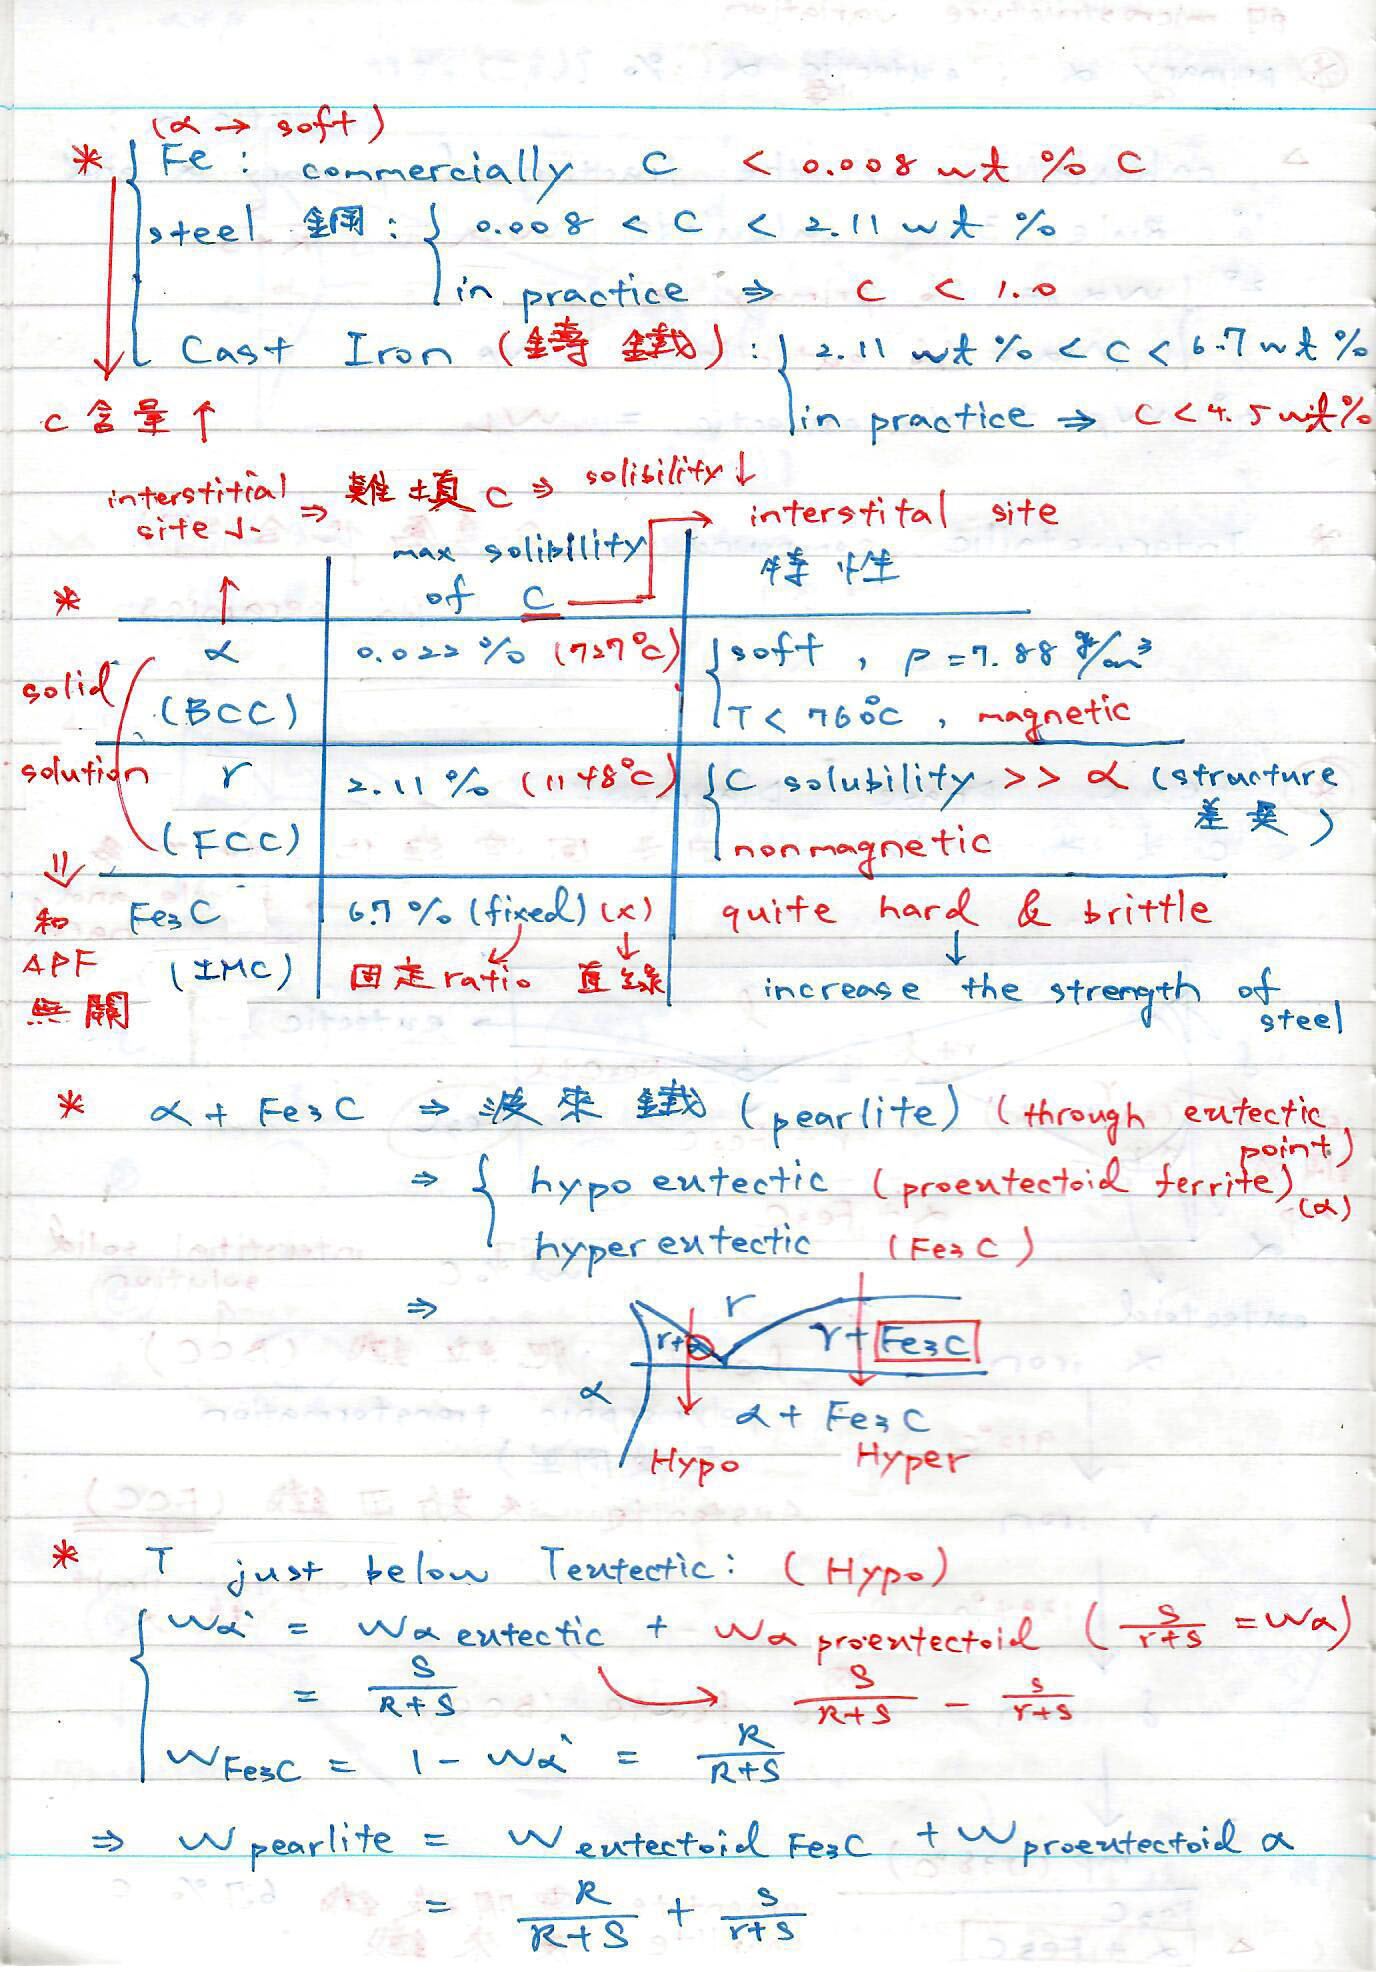 (α → soft)
* Fe : commercially C < 0.008 wt % C
steel 鋼 : 0.008 < C < 2.11 wt %
in practice ⇒ C < 1.0
Cast Iron (鑄鐵) : 2.11 wt % < C < 6.7 wt %
C 含量 ↑
in practice ⇒ C < 4.5 wt%
interstitial site 小 ⇒ 難填 C ⇒ solibility ↓
* max solibility of C → interstital site
特性
solid solution
α (BCC)
0.022 % (727°C)
soft , ρ = 7.88 g/cm³
T < 760°C , magnetic
r (FCC)
2.11 % (1148°C)
C solubility >> α (structure 差異)
nonmagnetic
⇓
和
APF
無關
Fe3C (IMC)
6.7 % (fixed) (x)
↓ 固定 ratio
↓ 直線
quite hard & brittle
↓
increase the strength of steel
* α + Fe3C ⇒ 波來鐵 (pearlite) (through eutectic point)
⇒ hypo eutectic (proeutectoid ferrite) (α)
hyper eutectic (Fe3C)
⇒
r
r+α
γ + Fe3C
α
α + Fe3C
Hypo
Hyper
* T just below Teutectic : (Hypo)
Wα' = Wα eutectic + Wα proeutectoid ( S/r+S = Wα)
= S/R+S
S/R+S − S/r+S
W Fe3C = 1 − Wα' = R/R+S
⇒ W pearlite = W eutectoid Fe3C + W proeutectoid α
= R/R+S + S/r+S